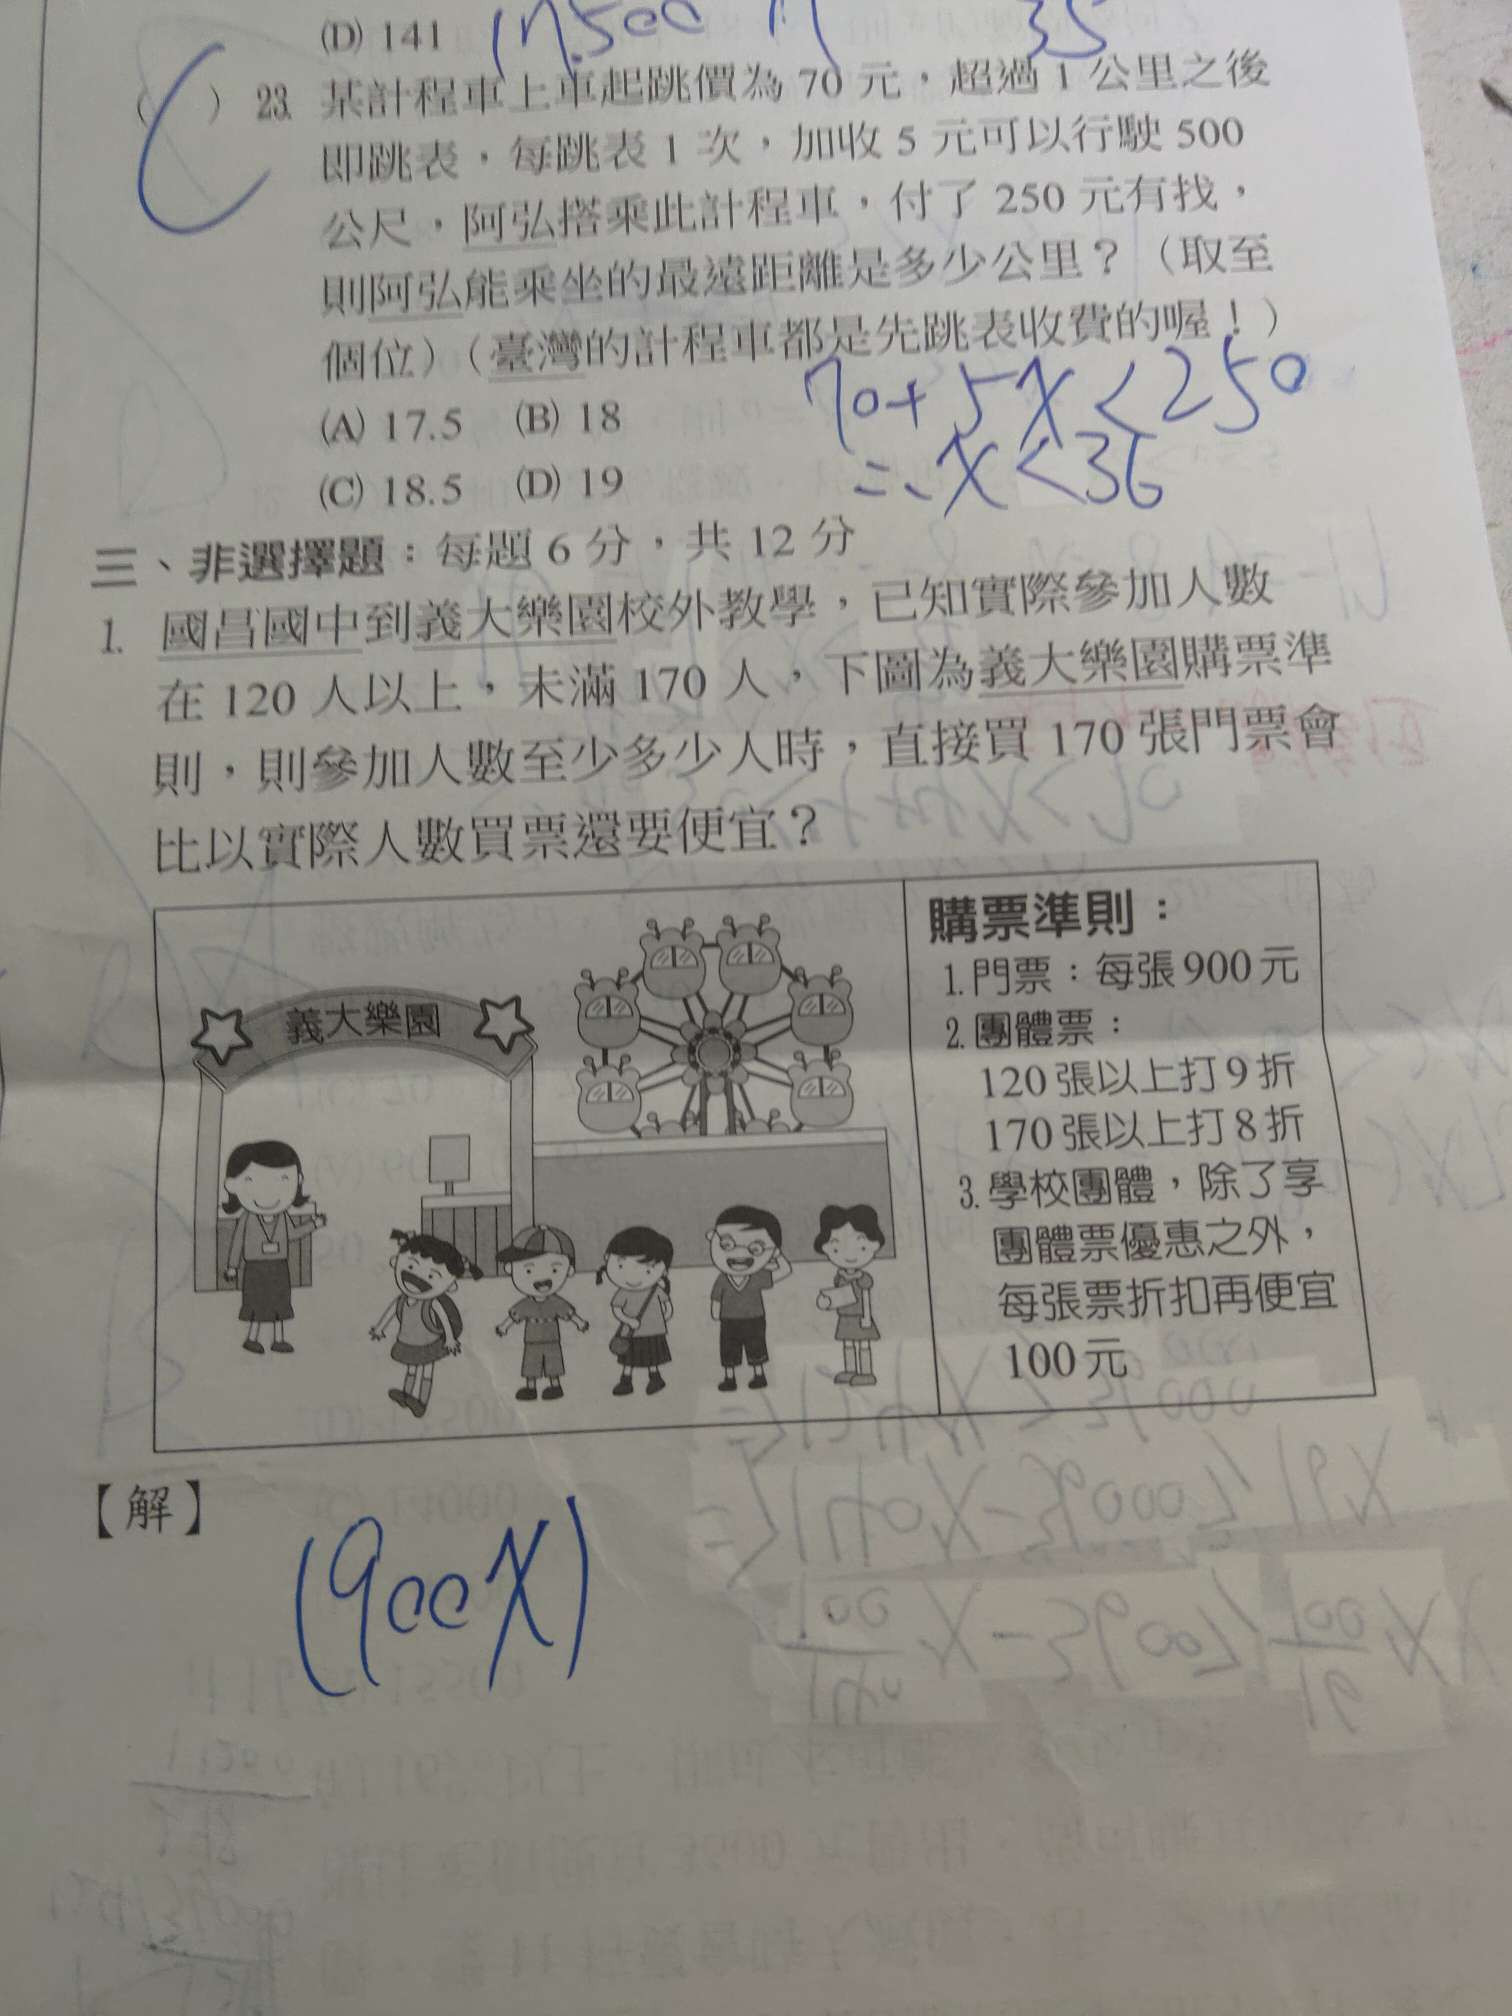 (D) 141 17.500 35
( ) 23. 某計程車上車起跳價為 70 元，超過 1 公里之後
即跳表，每跳表 1 次，加收 5 元可以行駛 500
公尺，阿弘搭乘此計程車，付了 250 元有找，
則阿弘能乘坐的最遠距離是多少公里？（取至
個位）（臺灣的計程車都是先跳表收費的喔！）
(A) 17.5 (B) 18
70+5X<250
(C) 18.5 (D) 19
X<36
三、非選擇題：每題 6 分，共 12 分
1. 國昌國中到義大樂園校外教學，已知實際參加人數
在 120 人以上，未滿 170 人，下圖為義大樂園購票準
則，則參加人數至少多少人時，直接買 170 張門票會
比以實際人數買票還要便宜？
義大樂園
購票準則：
1. 門票：每張 900 元
2. 團體票：
120 張以上打 9 折
170 張以上打 8 折
3. 學校團體，除了享
團體票優惠之外，
每張票折扣再便宜
100 元
【解】
(900X)